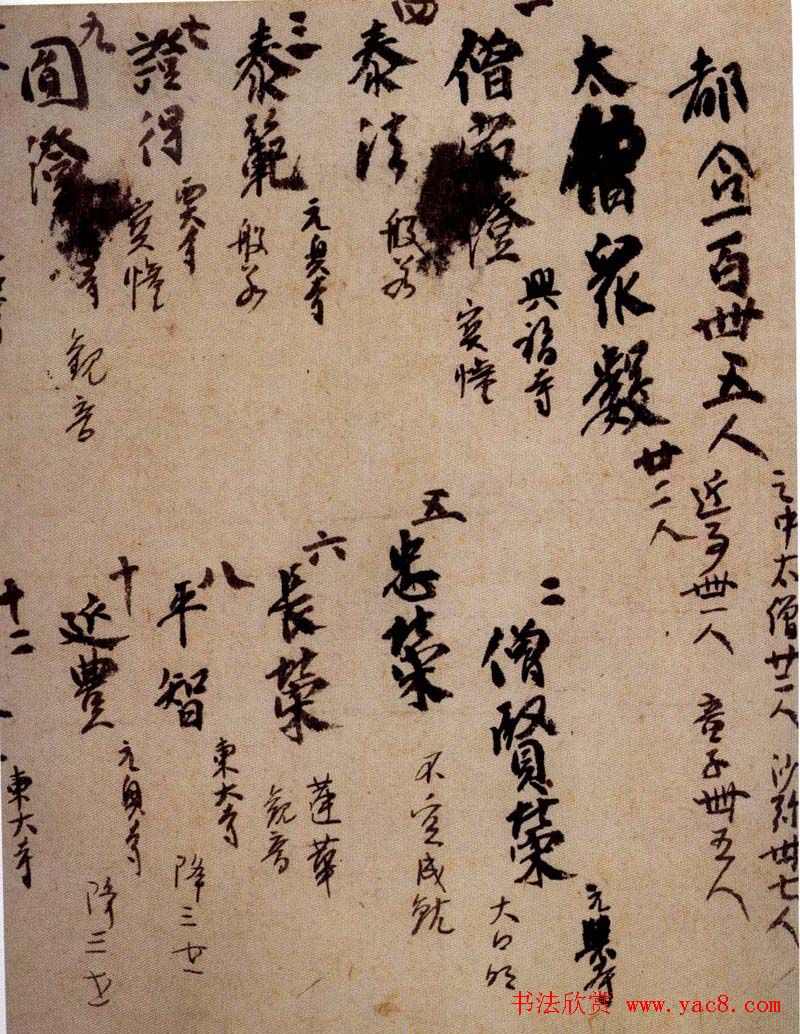 都合一百卌五人
之中太僧廿二人 沙弥卅七人
近事卌一人 童子卌五人
太僧衆數 廿二人
一
僧 澄 興福寺 寶幢
二
僧賢榮 元興寺 大日
四
泰法 般若
五
忠榮 不空成就
三
泰範 元興寺 般若
六
長榮 蓮華 觀音
七
證得 寶幢
八
平智 東大寺 降三世
九
圓澄 寺 觀音
十
延豊 元興寺 降三世
十二
東大寺
书法欣赏 www.yac8.com